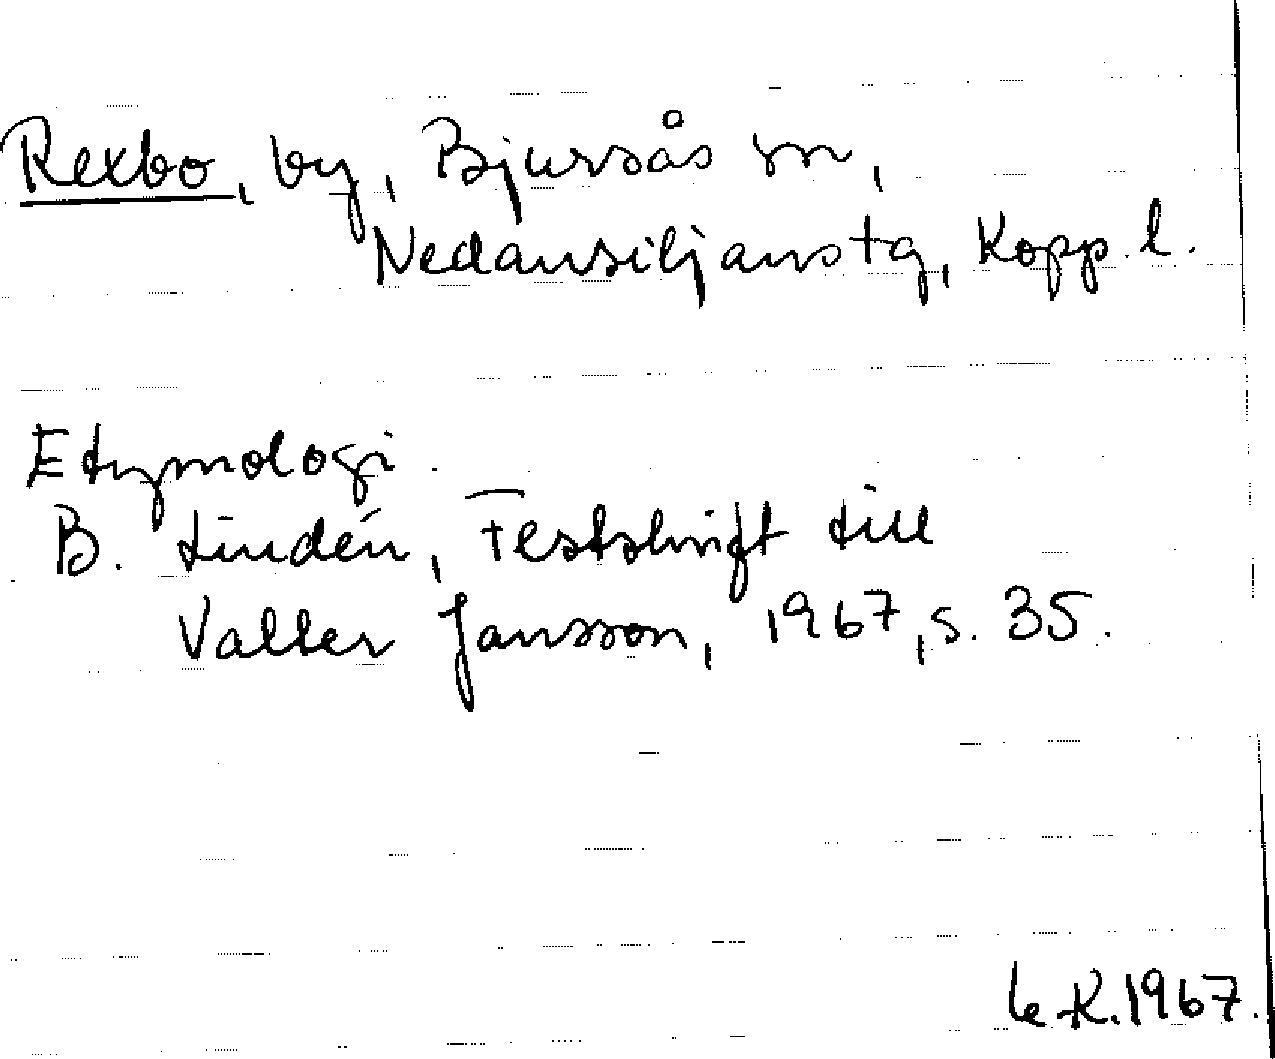 Rexbo, by, Bjursås sn,
Nedansiljans tg, Kopp. l.
Etymologi.
B. Lindén, Festskrift till
Valter Jansson, 1967, s. 35.
K. 1967.